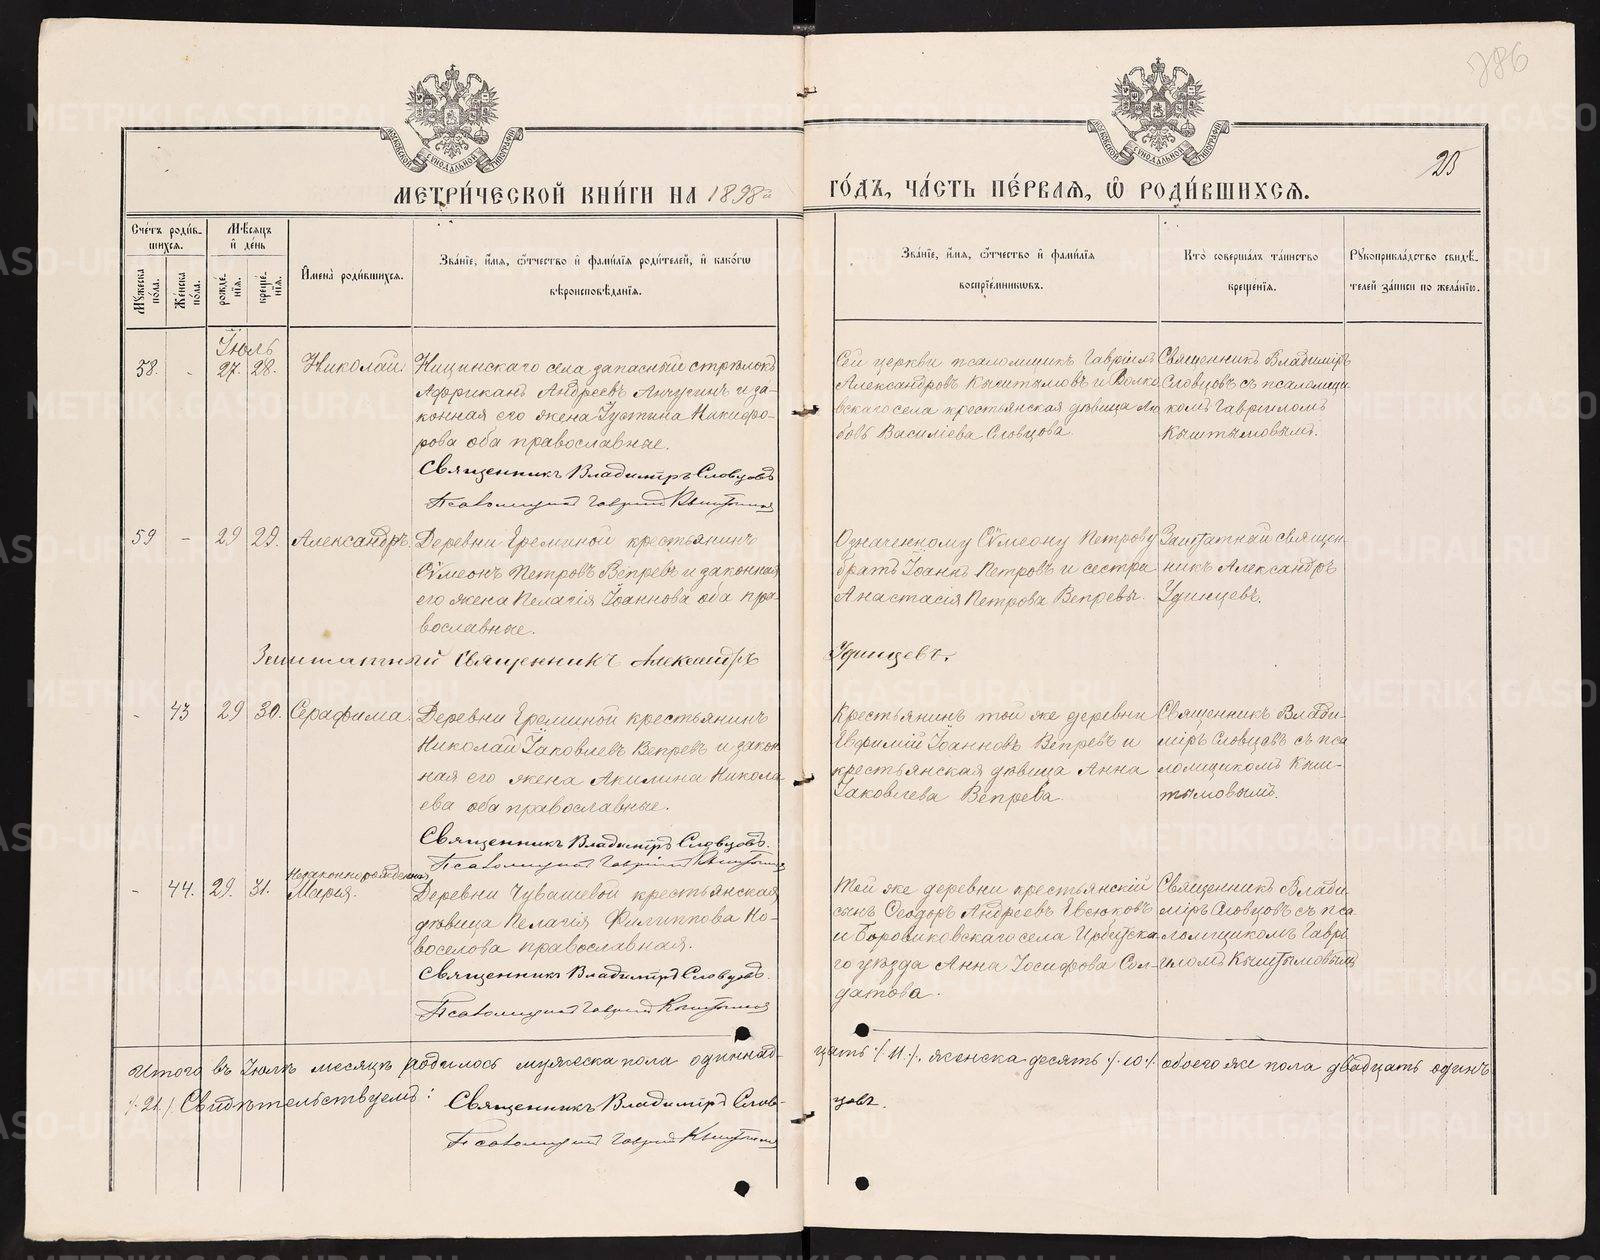 286
25
МЕТРИ́ЧЕСКОЙ КНИ́ГИ НА 1898й ГО́ДЪ, ЧА́СТЬ ПЕ́РВАЯ, Ѡ РОДИ́ВШИХСЯ.
Сче́тъ роди́вшихся.
Му́жеска по́ла.
Же́нска по́ла.
Мѣ́сяцъ и де́нь
рожде́нїя.
креще́нїя.
Имена̀ роди́вшихся.
Зва́нїе, и́мя, ѻ́тчество и фами́лїя роди́телей, и како́гѡ вѣроисповѣ́данїя.
Зва́нїе, и́мя, ѻ́тчество и фами́лїя воспрїе́мниковъ.
Кто̀ соверша́лъ та́инство креще́нїя.
Рꙋкоприкла́дство свидѣ́телей за́писи по жела́нїю.
Іюль
58. - 27. 28. Николай.
Ницинскаго села запасный стрѣлокъ
Африканъ Андреевъ Анчугинъ и за-
конная его жена Іустина Никифо-
рова оба православные.
Священникъ Владиміръ Словцовъ
Псаломщикъ Гавріилъ Кыштымовъ
Сей церкви псаломщикъ Гавріилъ
Александровъ Кыштымовъ и Волко
вскаго села крестьянская дѣвица Лю
бовь Василіева Словцова.
Священникъ Владиміръ
Словцовъ съ псаломщи
комъ Гавріиломъ
Кыштымовымъ.
59 - 29 29. Александръ.
Деревни Ереминой крестьянинъ
Сѵмеонъ Петровъ Вепревъ и законная
его жена Пелагія Іоаннова оба пра-
вославные.
Заштатный Священникъ Александръ Удинцевъ.
Означенному Сѵмеону Петрову
братъ Іоаннъ Петровъ и сестра
Анастасія Петрова Вепревы.
Заштатный священ-
никъ Александръ
Удинцевъ.
- 43 29 30. Серафима.
Деревни Ереминой крестьянинъ
Николай Іаковлевъ Вепревъ и закон
ная его жена Акилина Никола
ева оба православные.
Священникъ Владиміръ Словцовъ.
Псаломщикъ Гавріилъ Кыштымовъ
Крестьянинъ той же деревни
Евфимій Іоанновъ Вепревъ и
крестьянская дѣвица Анна
Іаковлева Вепрева.
Священникъ Влади-
міръ Словцовъ съ пса
ломщикомъ Кыш-
тымовымъ.
- 44. 29. 31. Незаконнорожденная
Марія.
Деревни Чувашевой крестьянская
дѣвица Пелагія Филиппова Но-
воселова православная.
Священникъ Владиміръ Словцовъ.
Псаломщикъ Гавріилъ Кыштымовъ
Той же деревни крестьянскій
сынъ Ѳеодоръ Андреевъ Евсюковъ
и Боровиковскаго села Ирбитска
го уѣзда Анна Іосифова Сол-
датова.
Священникъ Влади-
міръ Словцовъ съ пса
ломщикомъ Гаврі
иломъ Кыштымовымъ
Итого въ Іюлѣ месяцѣ родилось мужеска пола одиннад- цать /11/. женска десять /10/. обоего же пола двадцать одинъ
/21/ Свидѣтельствуемъ: Священникъ Владиміръ Слов- цовъ.
Псаломщикъ Гавріилъ Кыштымовъ
METRIKI.GASO-URAL.RU